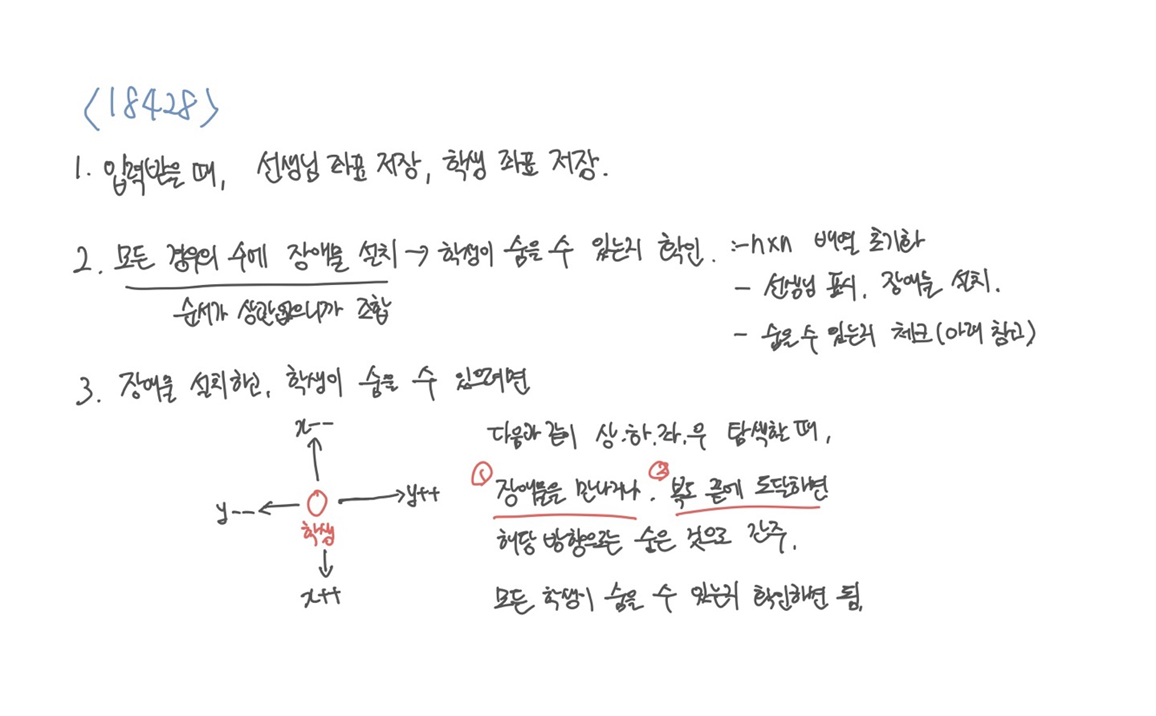 <18428>
1. 입력받을 때, 선생님 좌표 저장, 학생 좌표 저장.
2. 모든 경우의 수에 장애물 설치 → 학생이 숨을 수 있는지 확인. :- n×n 배열 초기화
순서가 상관없으니까 조합
- 선생님 표시, 장애물 설치.
- 숨을 수 있는지 체크(아래 참고)
3. 장애물 설치하고, 학생이 숨을 수 있으려면
x--
y--
y++
학생
x++
다음과 같이 상.하.좌.우 탐색할 때,
① 장애물을 만나거나. ② 복도 끝에 도달하면
해당 방향으로는 숨은 것으로 간주.
모든 학생이 숨을 수 있는지 확인하면 됨.